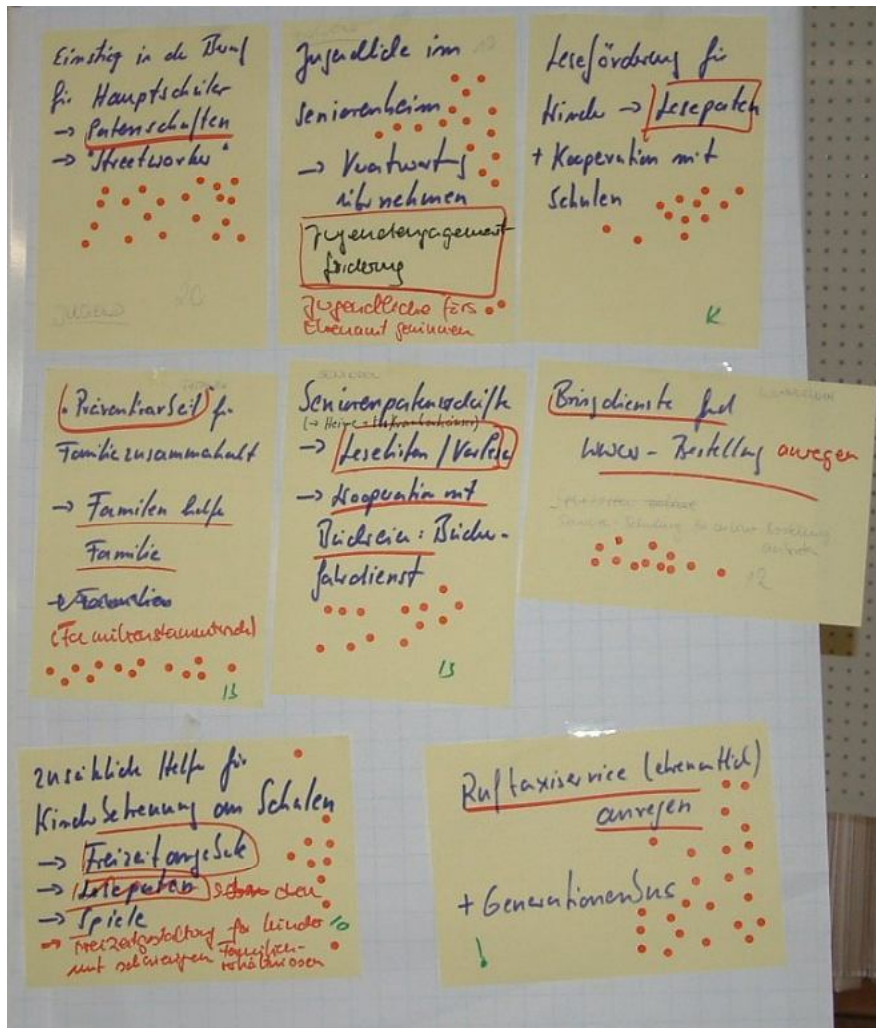 Einstieg in de Beruf
für Hauptschüler
→ Patenschaften
→ "Streetworker"
JUGEND
20
Jugendliche im
Seniorenheim
→ Verantwortg
übernehmen
Jugendengagement-
förderung
Jugendliche fürs
Ehrenamt gewinnen
Leseförderung für
Kinder → Lesepaten
+ Kooperation mit
Schulen
• Präventivarbeit für
Familienzusammenhalt
→ Familien helfen
Familie
(Familienstammtisch)
13
SENIOREN
Seniorenpatenschaften
→ Lesekisten / Vorlesen
→ Kooperation mit
Bücherei: Bücher-
fahrdienst
13
Bringdienste und
www - Bestellung anregen
12
zusätzliche Helfer für
Kinderbetreuung an Schulen
→ Freizeitangebote
→ Lesepaten
→ Spiele
→ Freizeitgestaltung für Kinder
mit schwierigen Familien-
verhältnissen
Ruftaxiservice (ehrenamtlich)
anregen
+ Generationenbus
!